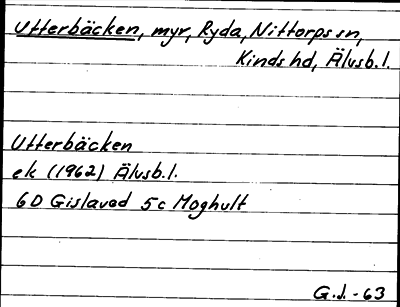 Utterbäcken, myr, Ryda, Nittorps sn,
Kinds hd, Älvsb. l.
Utterbäcken
ek (1962) Älvsb. l.
6D Gislaved 5c Moghult
G.J. -63